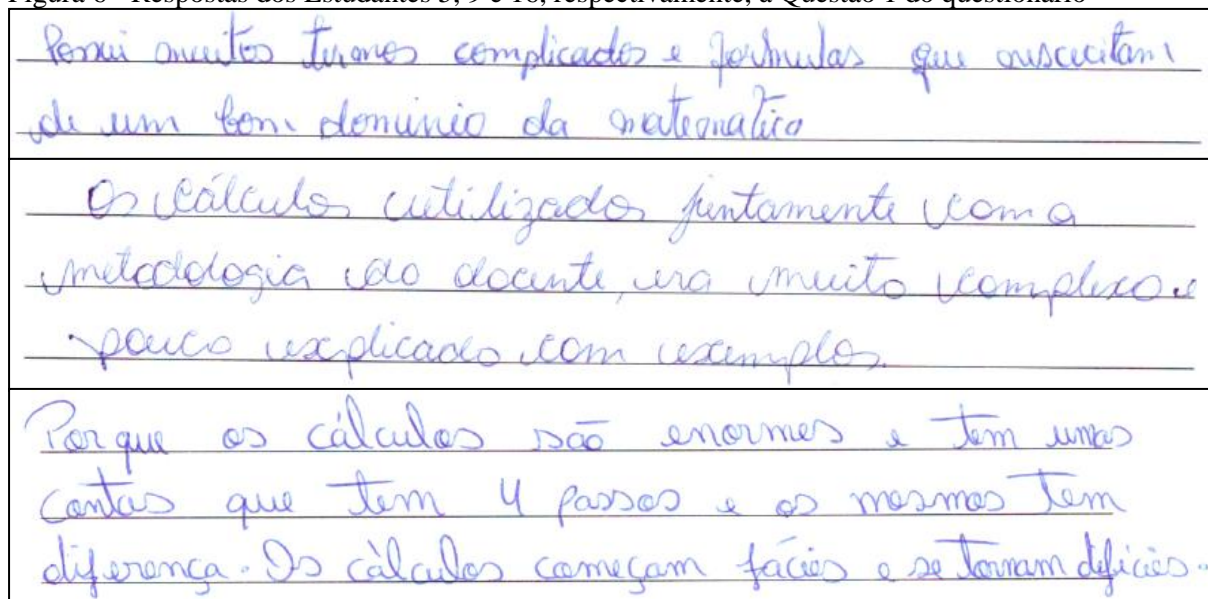 Figura 6 - Respostas dos Estudantes 5, 9 e 16, respectivamente, à Questão 1 do questionário
Possui muitos termos complicados e formulas que nescecitam
de um bom dominio da matematica
Os cálculos utilizados juntamente com a
metodologia do docente, era muito complexo e
pouco explicado com exemplos.
Por que os cálculos são enormes e tem umas
contas que tem 4 passos e os mesmos tem
diferença. Os cálculos começam fácies e se tornam dificies.